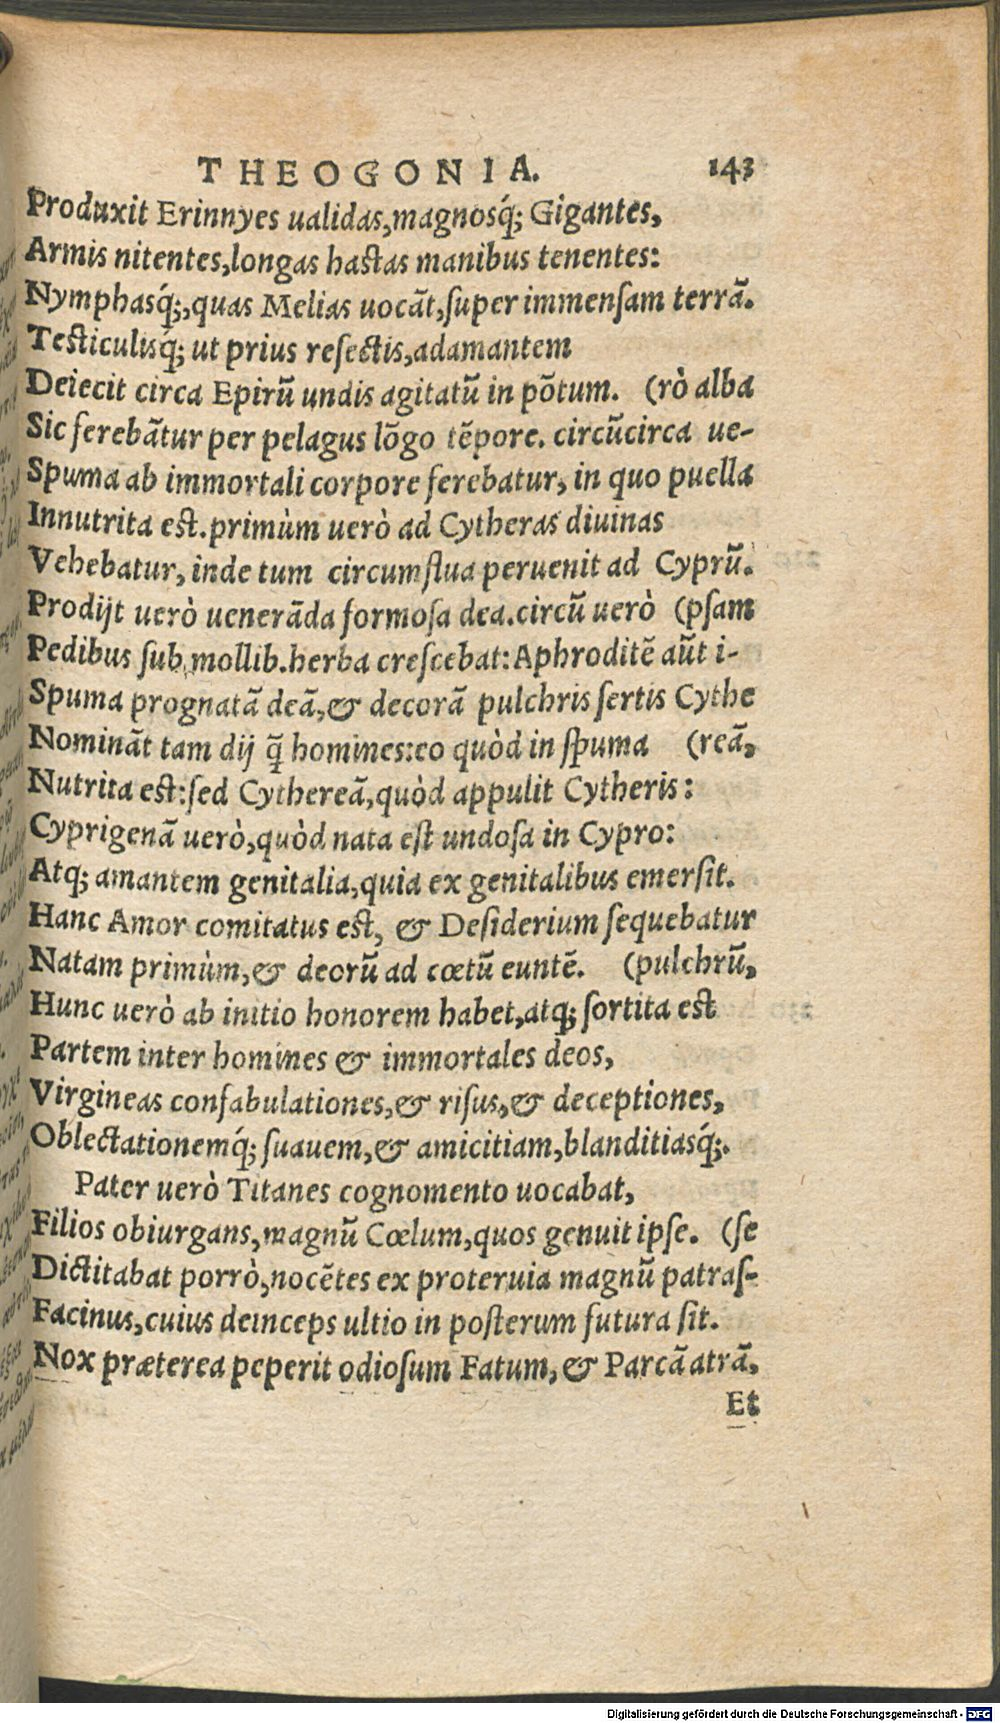 THEOGONIA. 143
Produxit Erinnyes ualidas,magnosq́; Gigantes,
Armis nitentes,longas hastas manibus tenentes:
Nymphasq́;,quas Melias uocãt,super immensam terrã.
Testiculisq́; ut prius resectis,adamantem
Deiecit circa Epirũ undis agitatũ in põtum. (rò alba
Sic ferebãtur per pelagus lõgo tẽpore. circũcirca ue-
Spuma ab immortali corpore ferebatur, in quo puella
Innutrita est.primùm uerò ad Cytheras diuinas
Vehebatur, inde tum circumflua peruenit ad Cyprũ.
Prodijt uerò uenerãda formosa dea.circũ uerò (psam
Pedibus sub mollib.herba crescebat:Aphroditẽ aũt i-
Spuma prognatã deã,& decorã pulchris sertis Cythe
Nominãt tam dij q̃ homines:eo quòd in spuma (reã,
Nutrita est:sed Cythereã,quòd appulit Cytheris:
Cyprigenã uerò,quòd nata est undosa in Cypro:
Atq; amantem genitalia,quia ex genitalibus emersit.
Hanc Amor comitatus est, & Desiderium sequebatur
Natam primùm,& deorũ ad cœtũ euntẽ. (pulchrũ,
Hunc uerò ab initio honorem habet,atq; sortita est
Partem inter homines & immortales deos,
Virgineas confabulationes,& risus,& deceptiones,
Oblectationemq́; suauem,& amicitiam,blanditiasq́;.
Pater uerò Titanes cognomento uocabat,
Filios obiurgans,magnũ Cœlum,quos genuit ipse. (se
Dictitabat porrò,nocẽtes ex proteruia magnũ patras-
Facinus,cuius deinceps ultio in posterum futura sit.
Nox præterea peperit odiosum Fatum,& Parcã atrã,
Et
Digitalisierung gefördert durch die Deutsche Forschungsgemeinschaft - DFG